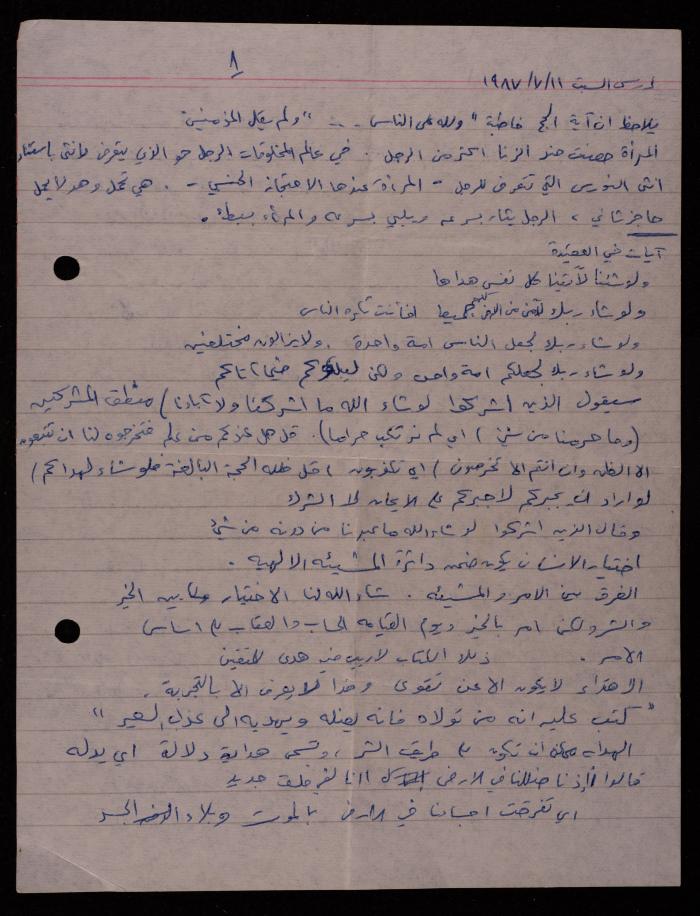 ٨
درس السبت ١٩٨٧/٧/١١
يلاحظ ان آية الحج خاطبة "ولله على الناس - - -" ولم يقل المؤمنين
المرأة حصنت ضد الزنا اكثر من الرجل .. في عالم المخلوقات الرجل هو الذي يتعرض للانثى باستثناء
انثى النورس التي تتعرف للرجل - المرأة عندها الاحتجاز الجنسي - . هي تحمل وهو لا يحمل
حاجز ثاني ، الرجل يثار بسرعه ويلبي بسرعه والمرأه ببطئ .
آيات في العقيدة
ولو شئنا لآتينا كل نفس هداها
ولو شاء ربك لآمن من في الارض كلهم جميعا افأنت تكره الناس
ولو شاء ربك لجعل الناس امة واحدة . ولا يزالون مختلفين
ولو شاء ربك لجعلكم امة واحده ولكن ليبلوكم فيما آتاكم
سيقول الذين اشركوا لو شاء الله ما اشركنا ولا آباؤنا) منطق المشركين
(وما حرمنا من شئ) اي لم نرتكب حراما). قل هل عندكم من علم فتخرجوه لنا ان تتبعون
الا الظن وان انتم الا تخرصون) اي تكذبون) قل فلله الحجة البالغة فلو شاء لهداكم)
لو اراد ان يجبركم لاجبركم على الايمان لا الشرك
وقال الذين اشركوا لو شاء الله ما عبدنا من دونه من شئ
اختيار الانسان يكون ضمن دائرة المشيئه الالهيه .
الفرق بين الامر والمشيئه . شاء الله لنا الاختيار وما بين الخير
والشر ولكن امر بالخير ويوم القيامه الحساب والعقاب على اساس
الامر . ذلك الكتاب لا ريب فيه هدى للمتقين
الاهتداء لا يكون الا عن تقوى وهذا لا يعرف الا بالتجربة .
"كتب عليه انه من تولاه فانه يضله ويهديه الى عذاب السعير"
الهدايه ممكن أن تكون على طريق الشر ، وتسمى هداية دلالة اي يدله
قالوا أإذا ضللنا في الارض أإنا لفي خلق جديد
اي تفرقت اجسادنا في الارض بالموت وبلاء الجسد